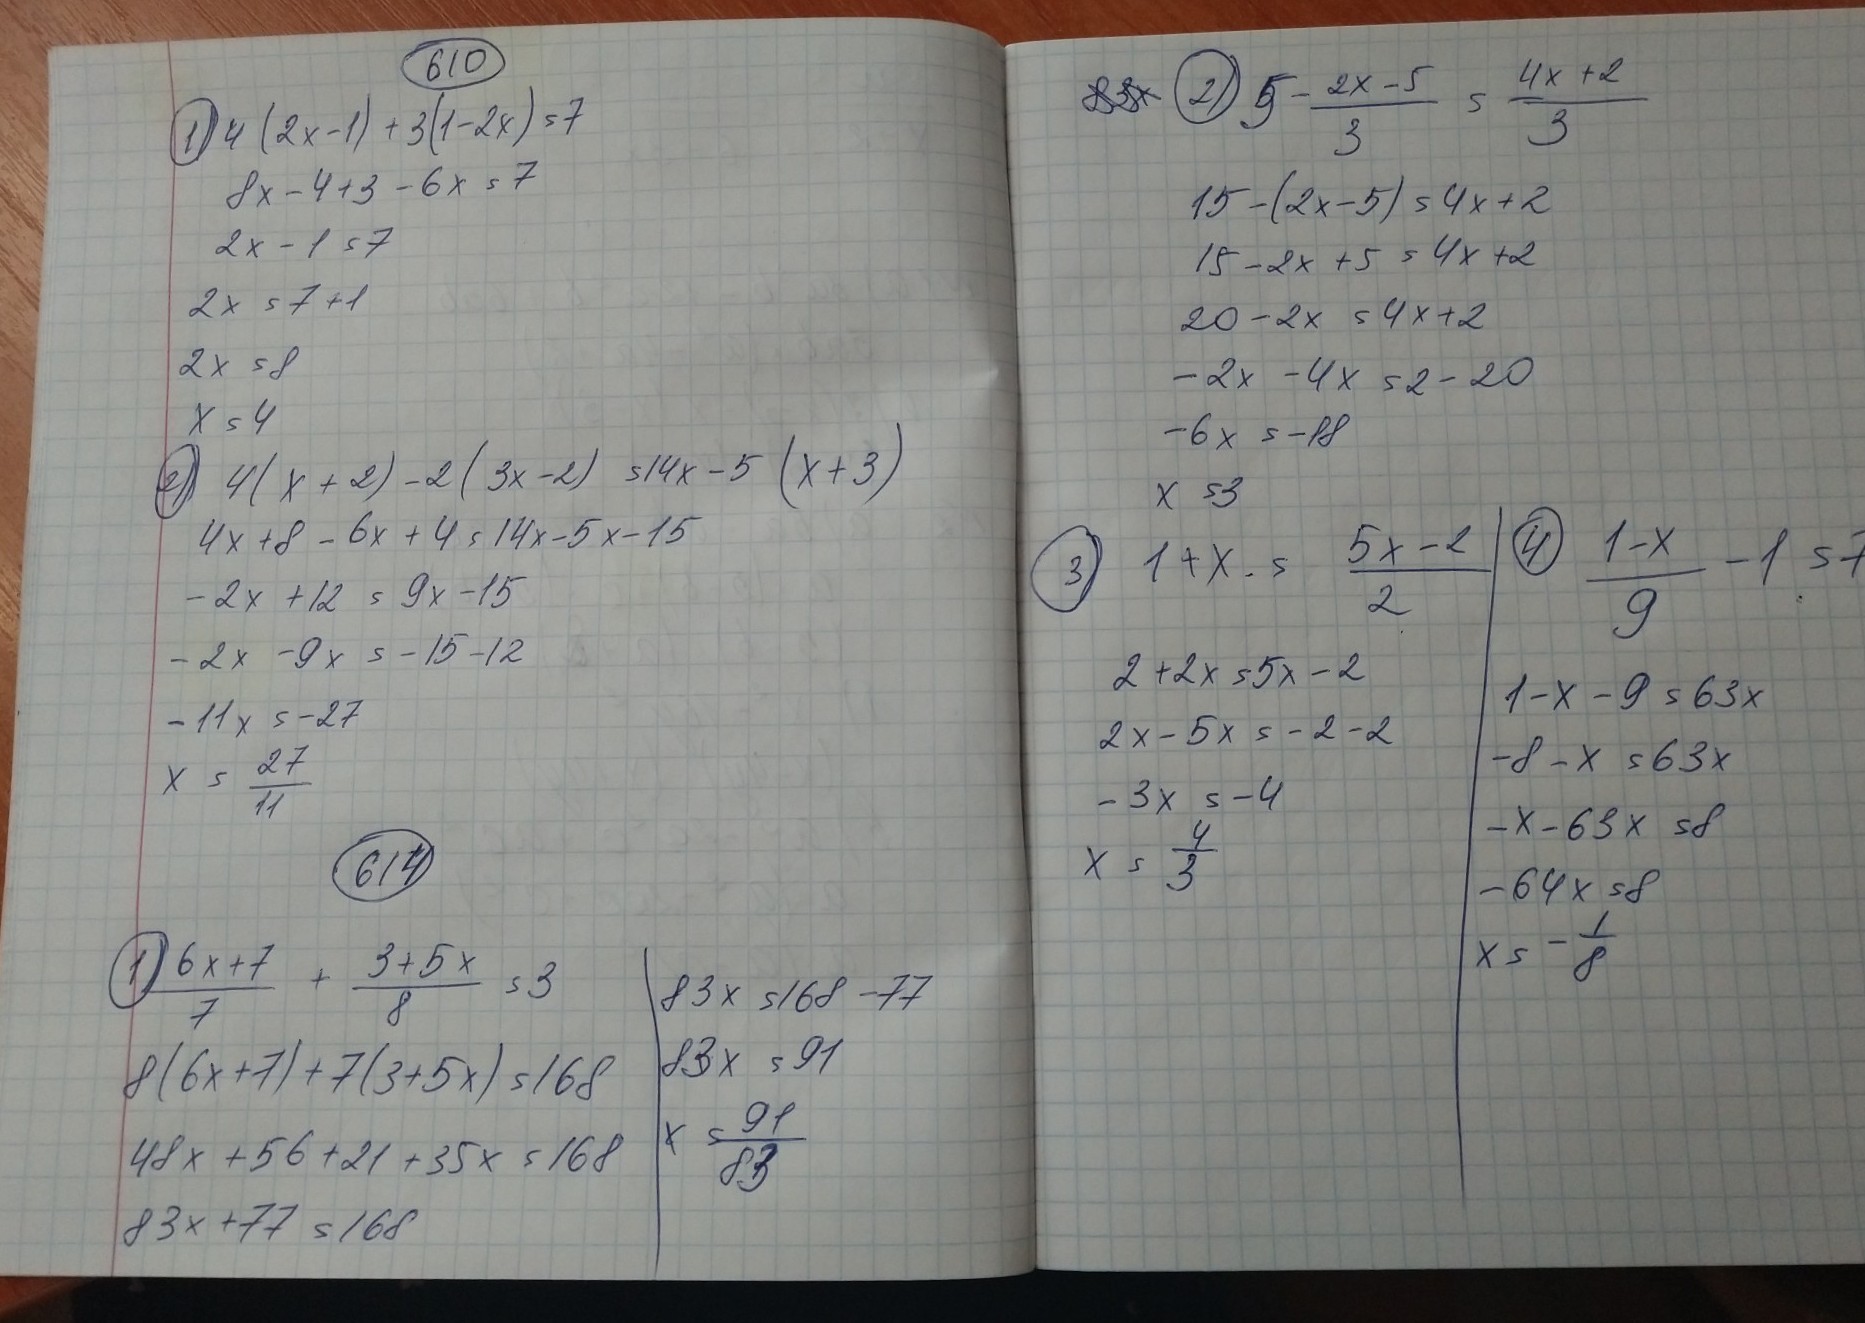 610
1) 4(2x-1)+3(1-2x)=7
8x-4+3-6x=7
2x-1=7
2x=7+1
2x=8
x=4
2) 4(x+2)-2(3x-2)=14x-5(x+3)
4x+8-6x+4=14x-5x-15
-2x+12=9x-15
-2x-9x=-15-12
-11x=-27
x=27/11
614
1) (6x+7)/7 + (3+5x)/8 = 3
8(6x+7)+7(3+5x)=168
48x+56+21+35x=168
83x+77=168
83x=168-77
83x=91
x=91/83
2) 5-(2x-5)/3=(4x+2)/3
15-(2x-5)=4x+2
15-2x+5=4x+2
20-2x=4x+2
-2x-4x=2-20
-6x=-18
x=3
3) 1+x=(5x-2)/2
2+2x=5x-2
2x-5x=-2-2
-3x=-4
x=4/3
4) (1-x)/9-1=7
1-x-9=63x
-8-x=63x
-x-63x=8
-64x=8
x=-1/8